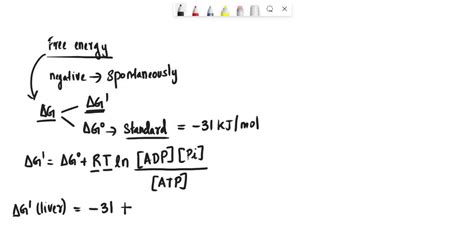 Free energy
negative → Spontaneously
ΔG ΔG'
ΔG° → Standard = -31 KJ/mol
ΔG' = ΔG° + RT ln [ADP] [Pi]
[ATP]
ΔG' (liver) = -31 +